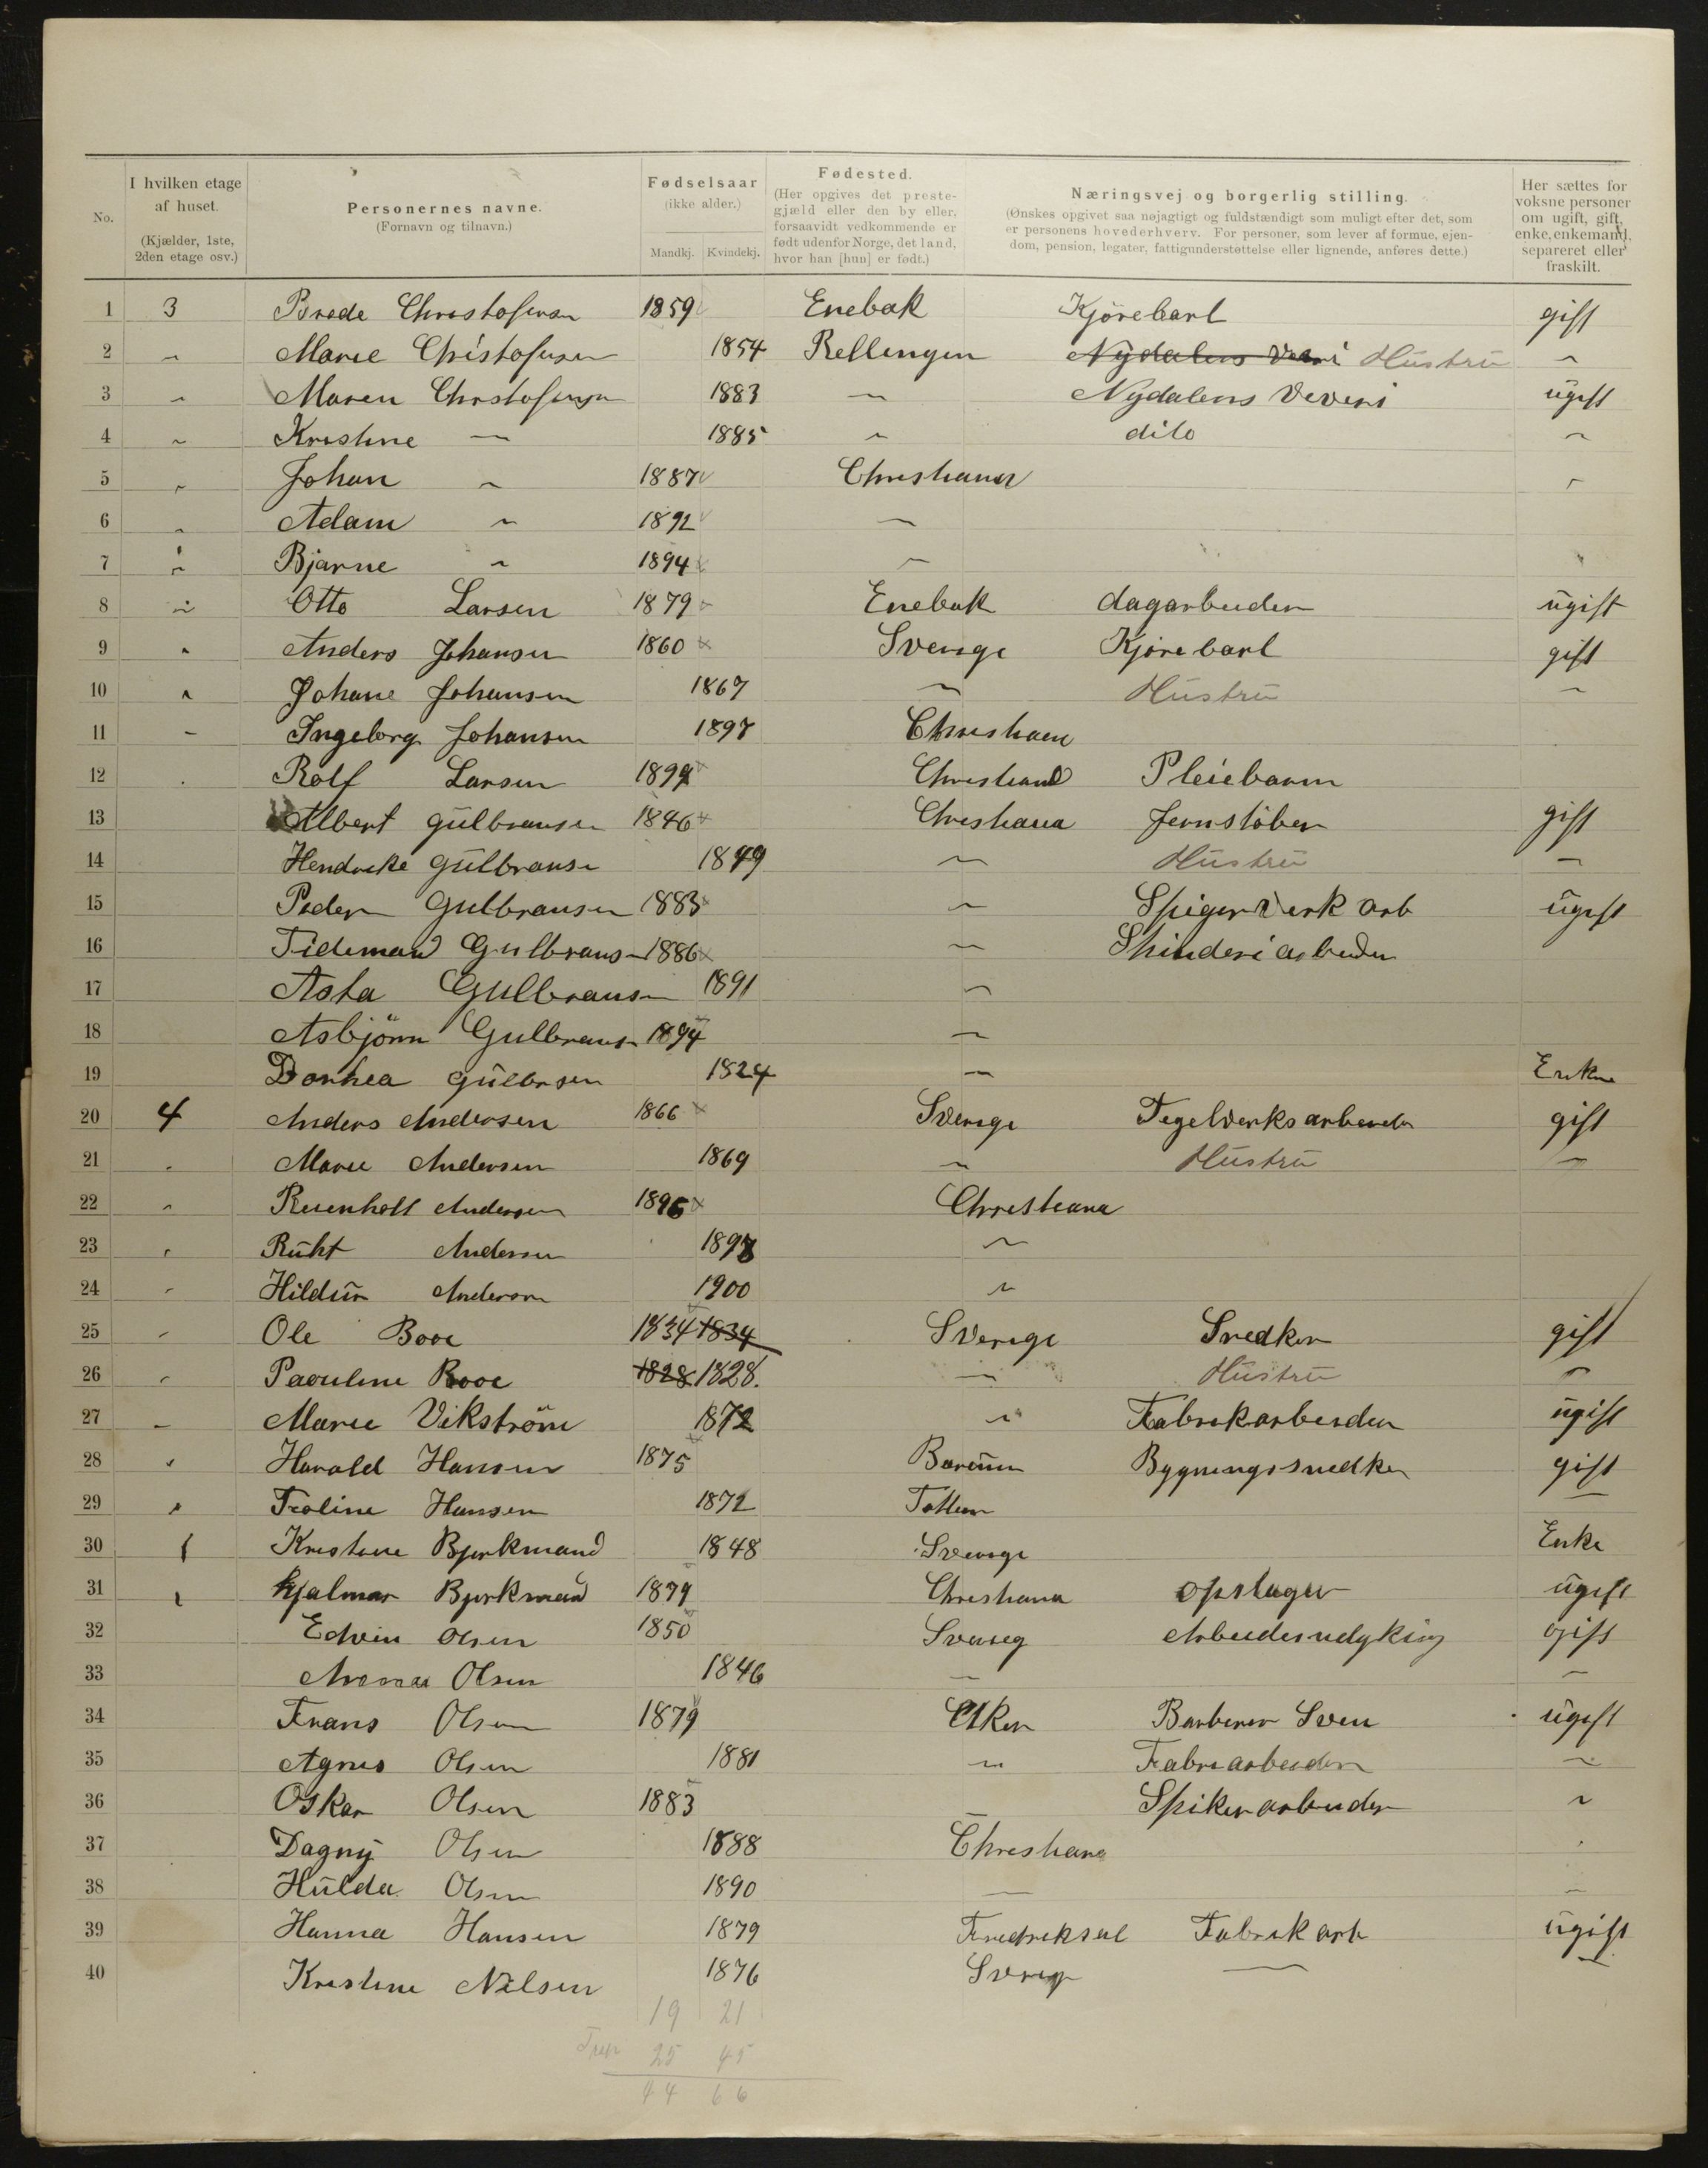 No.
I hvilken etage af huset.
(Kjælder, 1ste, 2den etage osv.)
Personernes navne.
(Fornavn og tilnavn.)
Fødselsaar
(ikke alder.)
Mandkj. Kvindekj.
Fødested.
(Her opgives det prestegjæld eller den by eller, forsaavidt vedkommende er født udenfor Norge, det land, hvor han [hun] er født.)
Næringsvej og borgerlig stilling.
(Ønskes opgivet saa nøjagtigt og fuldstændigt som muligt efter det, som er personens hovederhverv. For personer, som lever af formue, ejendom, pension, legater, fattigunderstøttelse eller lignende, anføres dette.)
Her sættes for voksne personer om ugift, gift, enke, enkemand, separeret eller fraskilt.
1 3 Brede Christofersen 1859 Enebak Kjørekarl gift
2 " Marie Christofersen 1854 Rellingen Nydalens Veveri Hustru "
3 " Maren Christofersen 1883 " Nydalens Veveri ugift
4 " Kristine " 1885 " dito "
5 " Johan " 1887 Christiania "
6 " Adam " 1892 "
7 " Bjarne " 1894 "
8 " Otto Larsen 1879 Enebak dagarbeider ugift
9 " Anders Johansen 1860 Sverige Kjørekarl gift
10 " Johane Johansen 1867 " Hustru "
11 " Ingeborg Johansen 1897 Christiania
12 Rolf Larsen 1899 Christiania Pleiebarn
13 Albert Gulbransen 1846 Christiania Jernstøber gift
14 Hendrikke Gulbransen 1849 " Hustru "
15 Peder Gulbransen 1883 " Spigerverk arb ugift
16 Tidemand Gulbrans 1886 " Spinderiarbeider
17 Asta Gulbransen 1891 "
18 Asbjørn Gulbransen 1894 "
19 Dorthea Gulbrsen 1824 " Enke
20 4 Anders Andersen 1866 Sverige Tegelverksarbeider gift
21 " Marie Andersen 1869 " Hustru "
22 " Reienholt Andersen 1896 Christiania
23 " Ruht Andersen 1898 "
24 " Hildur Andersen 1900 "
25 " Ole Booe 1834 1834 Sverige Snedker gift
26 " Paouline Booe 1828 1828. " Hustru "
27 " Marie Vikström 1872 " Fabrikarbeider ugift
28 " Harald Hansen 1875 Barum Bygningssnedker gift
29 " Troline Hansen 1872 Totten "
30 " Kristine Bjorkmand 1848 Sverige Enke
31 " Hjalmar Bjorkmand 1879 Christiania opslager ugift
32 Edvin Olsen 1850 Sverieg gift
33 Olsen 1846 " "
34 Frans Olsen 1879 Aker Barberer Sven ugift
35 Agnes Olsen 1881 " Fabriarbeider "
36 Oskar Olsen 1883 Spikerarbeider "
37 Dagny Olsen 1888 Christiania
38 Hulda Olsen 1890 " "
39 Hanna Hansen 1879 Fredriksal Fabrik arb ugift
40 Kristine Nilsen 1876 Sverig " "
19 21
25 45
44 66